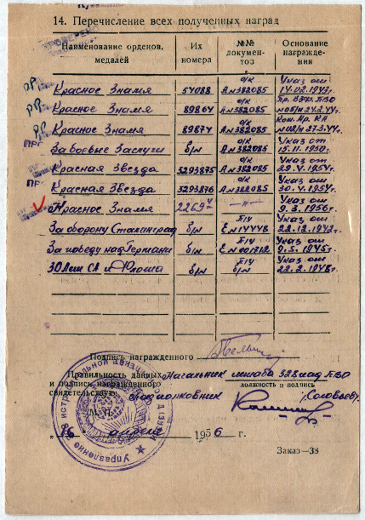 14. Перечисление всех полученных наград
Наименование орденов, медалей
Их номера
№№ документов
Основание награждения
Красное Знамя 54088 о/к А № 382085 Указ от 14.02.1943г.
Красное Знамя 89864 о/к А № 382085
Красное Знамя 89874 о/к А № 382085
За боевые Заслуги б/н о/к А № 382085 Указ от 15.11.1950г.
Красная Звезда 3293875 о/к А № 382085 Указ от 29.4.1954г.
Красная Звезда 3293876 о/к А № 382085 Указ от 30.4.1954г.
Красное Знамя —"— Указ от 1956г.
За оборону Сталинград б/н Указ от 22.12.1942г.
За победу над Германи б/н Указ от 9.5.1945г.
30 Лет СА и Флота б/н б/у б/н Указ от 22.2.1948г.
Подпись награжденного
Правильность данных и подписи награжденного свидетельствую
Начальник штаба 328 иад ПВО
должность и подпись
Подполковник
(Соловьев)
М. П.
апреля 1956 г.
Заказ—38